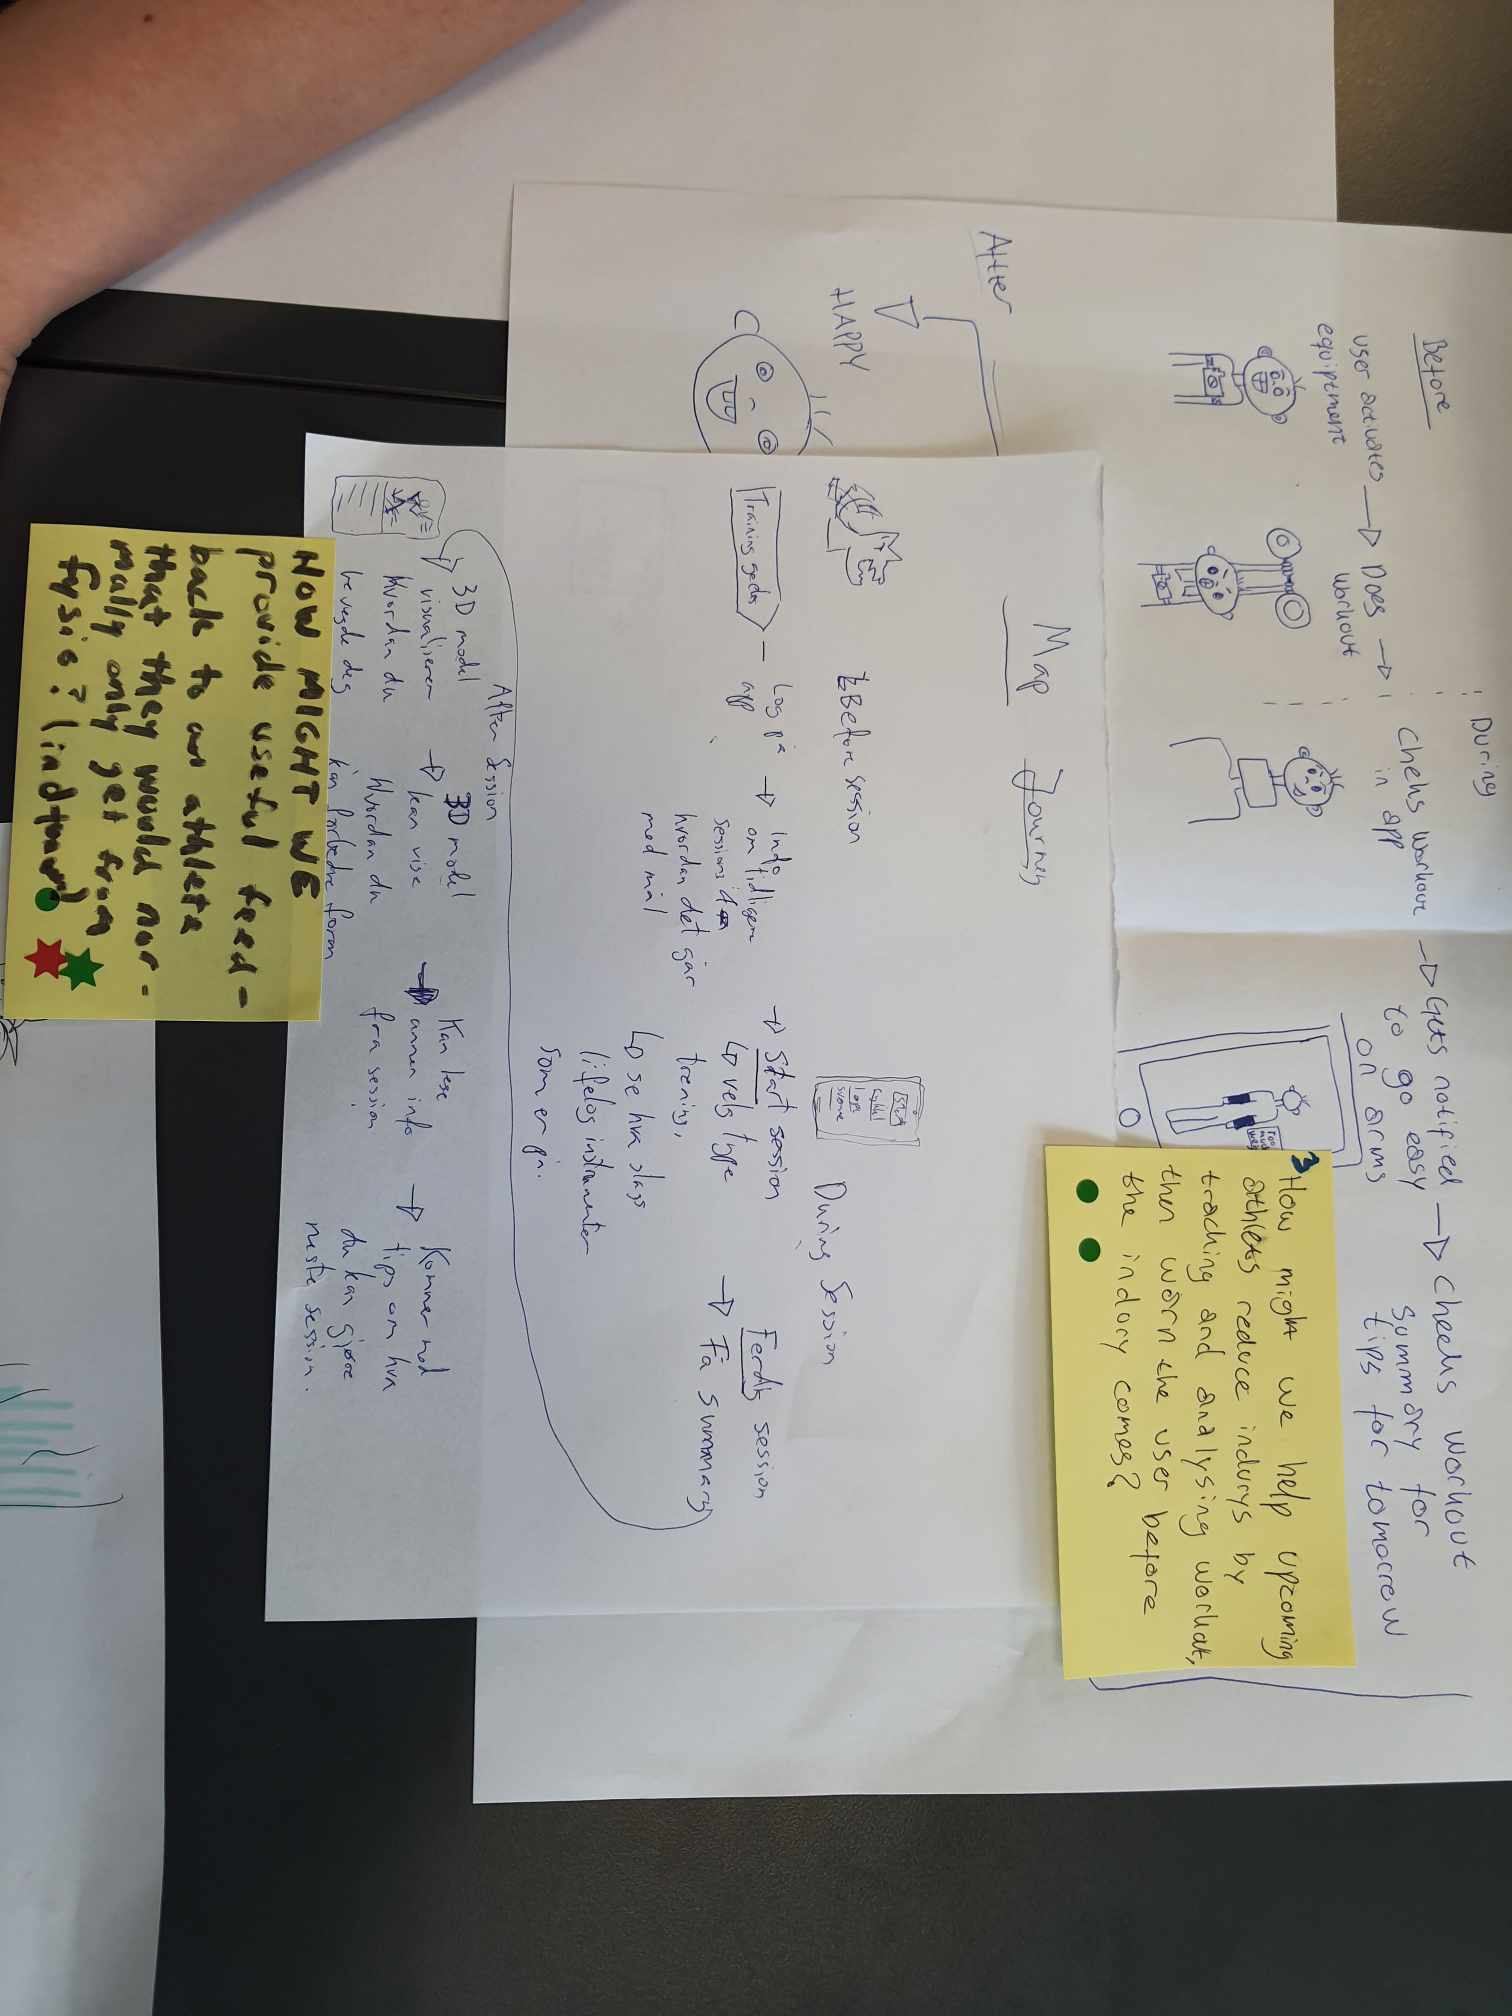 Before
During
user activates → Does → Checks workout → Gets notified → Checks workout
equiptment
workout
in app
to go easy
on arms
summary for
tips for tomorrow
Too
much
After
HAPPY
3 How might we help upcoming
athlets reduce indurys by
tracking and analysing workout,
then warn the user before
the indury comes?
Map Journey
Before session
During Session
Start
Training
Log på
app
→ Info
om tidligere
sessions
hvordan det går
med mål
→ Start session
↳ velg type
trening,
↳ se hva slags
lifelog instrumenter
som er på.
→ Ferdig session
Få summary
After Session
→ 3D model
visualiserer
hvordan du
bevegde deg
→ 3D model
kan vise
hvordan du
kan forbedre form
→ Kan lese
annen info
fra session
→ Kommer med
tips om hva
du kan gjøre
neste session.
HOW MIGHT WE
provide useful feed-
back to an athlete
that they would nor-
mally only get from
fysio?